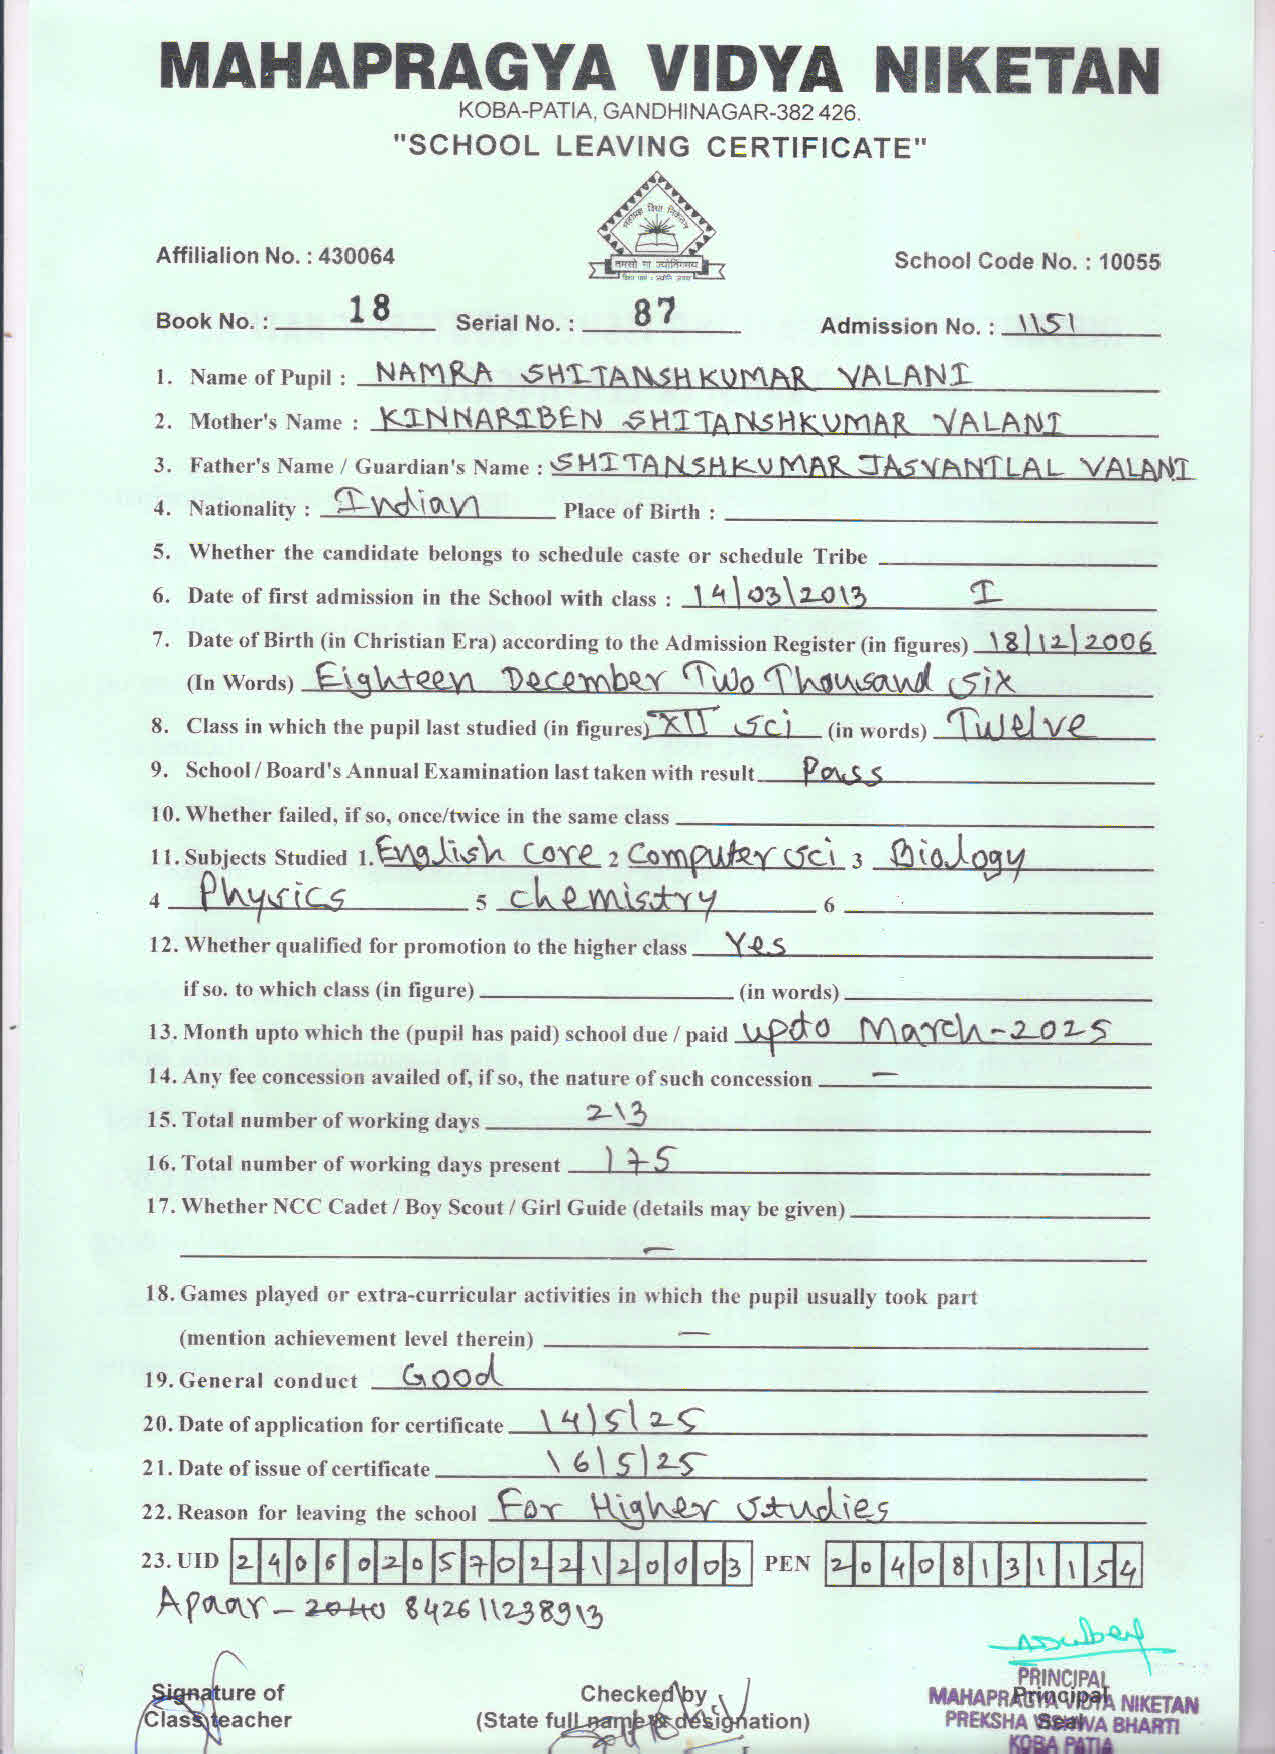 MAHAPRAGYA VIDYA NIKETAN
KOBA-PATIA, GANDHINAGAR-382 426.
"SCHOOL LEAVING CERTIFICATE"
महाप्रज्ञ विद्या निकेतन
तमसो मा ज्योतिर्गमय
Affilialion No. : 430064
School Code No. : 10055
Book No. : 18 Serial No. : 87 Admission No. : 1151
1. Name of Pupil : NAMRA SHITANSHKUMAR VALANI
2. Mother's Name : KINNARIBEN SHITANSHKUMAR VALANI
3. Father's Name / Guardian's Name : SHITANSHKUMAR JASVANTLAL VALANI
4. Nationality : Indian Place of Birth :
5. Whether the candidate belongs to schedule caste or schedule Tribe
6. Date of first admission in the School with class : 14/03/2013 I
7. Date of Birth (in Christian Era) according to the Admission Register (in figures) 18/12/2006
(In Words) Eighteen December Two Thousand six
8. Class in which the pupil last studied (in figures) XII sci (in words) Twelve
9. School / Board's Annual Examination last taken with result Pass
10. Whether failed, if so, once/twice in the same class
11. Subjects Studied 1. English core 2 Computer sci 3 Biology
4 Physics 5 chemistry 6
12. Whether qualified for promotion to the higher class Yes
if so. to which class (in figure) (in words)
13. Month upto which the (pupil has paid) school due / paid upto March-2025
14. Any fee concession availed of, if so, the nature of such concession —
15. Total number of working days 213
16. Total number of working days present 175
17. Whether NCC Cadet / Boy Scout / Girl Guide (details may be given)
—
18. Games played or extra-curricular activities in which the pupil usually took part
(mention achievement level therein) —
19. General conduct Good
20. Date of application for certificate 14/5/25
21. Date of issue of certificate 16/5/25
22. Reason for leaving the school For Higher studies
23. UID 240602057022120003 PEN 20408131154
Apaar - 2040 842611238913
Signature of
Class teacher
Checked by
(State full name & designation)
Principal
Seal
PRINCIPAL
MAHAPRAGYA VIDYA NIKETAN
PREKSHA VISHWA BHARTI
KOBA PATIA